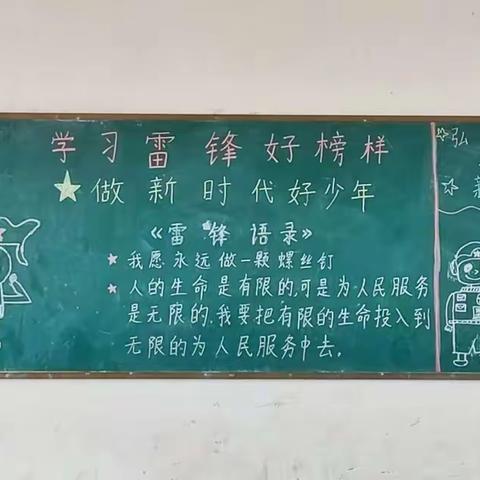 学习雷锋好榜样
★做新时代好少年
《雷锋语录》
★我愿永远做一颗螺丝钉
★人的生命是有限的,可是为人民服务
是无限的,我要把有限的生命投入到
无限的为人民服务中去。
☆弘
☆